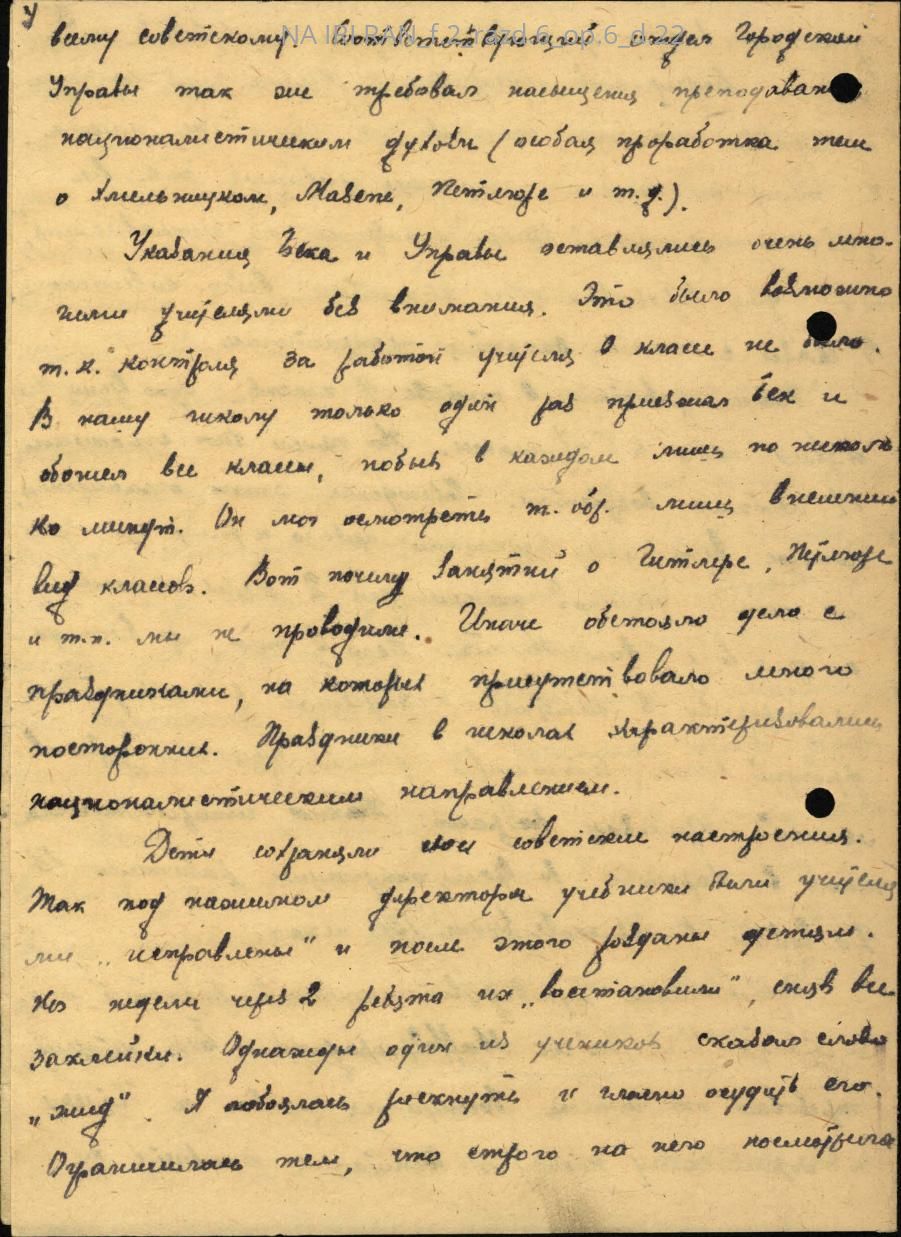 У
NA IRI RAN_f.2_razd.6_op.6_d.22
всему советскому. Соответствующий отдел Городской
Управы так же требовал насыщения преподавания
националистическим духом (особая проработка тем
о Хмельницком, Мазепе, Петлюре и т.д.).
Указания Бека и Управы оставлялись очень мно-
гими учителями без внимания. Это было возможно
т.к. контроля за работой учителя в классе не было.
В нашу школу только один раз приезжал Бек и
обошел все классы, побыв в каждом лишь по несколь
ко минут. Он мог осмотреть т. обр. лишь внешний
вид классов. Вот почему занятий о Гитлере, Петлюре
и т.п. мы не проводили. Иначе обстояло дело с
праздниками, на которых присутствовало много
посторонних. Праздники в школах характеризовались
националистическим направлением.
Дети сохраняли свои советские настроения.
Так под нажимом директора учебники были учителя
ми „исправлены" и после этого розданы детям.
Но недели через 2 ребята их „восстановили", сняв все
заклейки. Однажды один из учеников сказал слово
„жид". Я побоялась рискнуть и гласно осудить его.
Ограничилась тем, что строго на него посмотрела